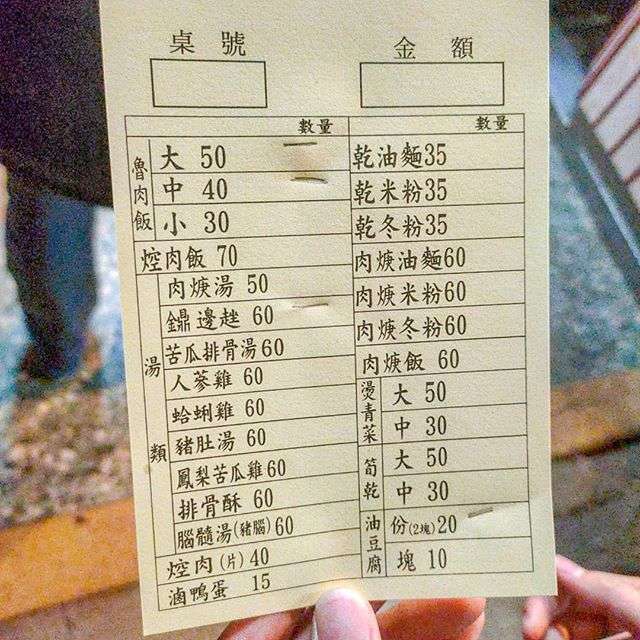 桌號
金額
數量
魯肉飯
大 50
中 40
小 30
焢肉飯 70
湯類
肉焿湯 50
鼎邊趖 60
苦瓜排骨湯60
人蔘雞 60
蛤蜊雞 60
豬肚湯 60
鳳梨苦瓜雞60
排骨酥 60
腦髓湯(豬腦)60
焢肉(片)40
滷鴨蛋 15
數量
乾油麵35
乾米粉35
乾冬粉35
肉焿油麵60
肉焿米粉60
肉焿冬粉60
肉焿飯 60
燙青菜
大 50
中 30
筍乾
大 50
中 30
油豆腐
份(2塊)20
塊 10